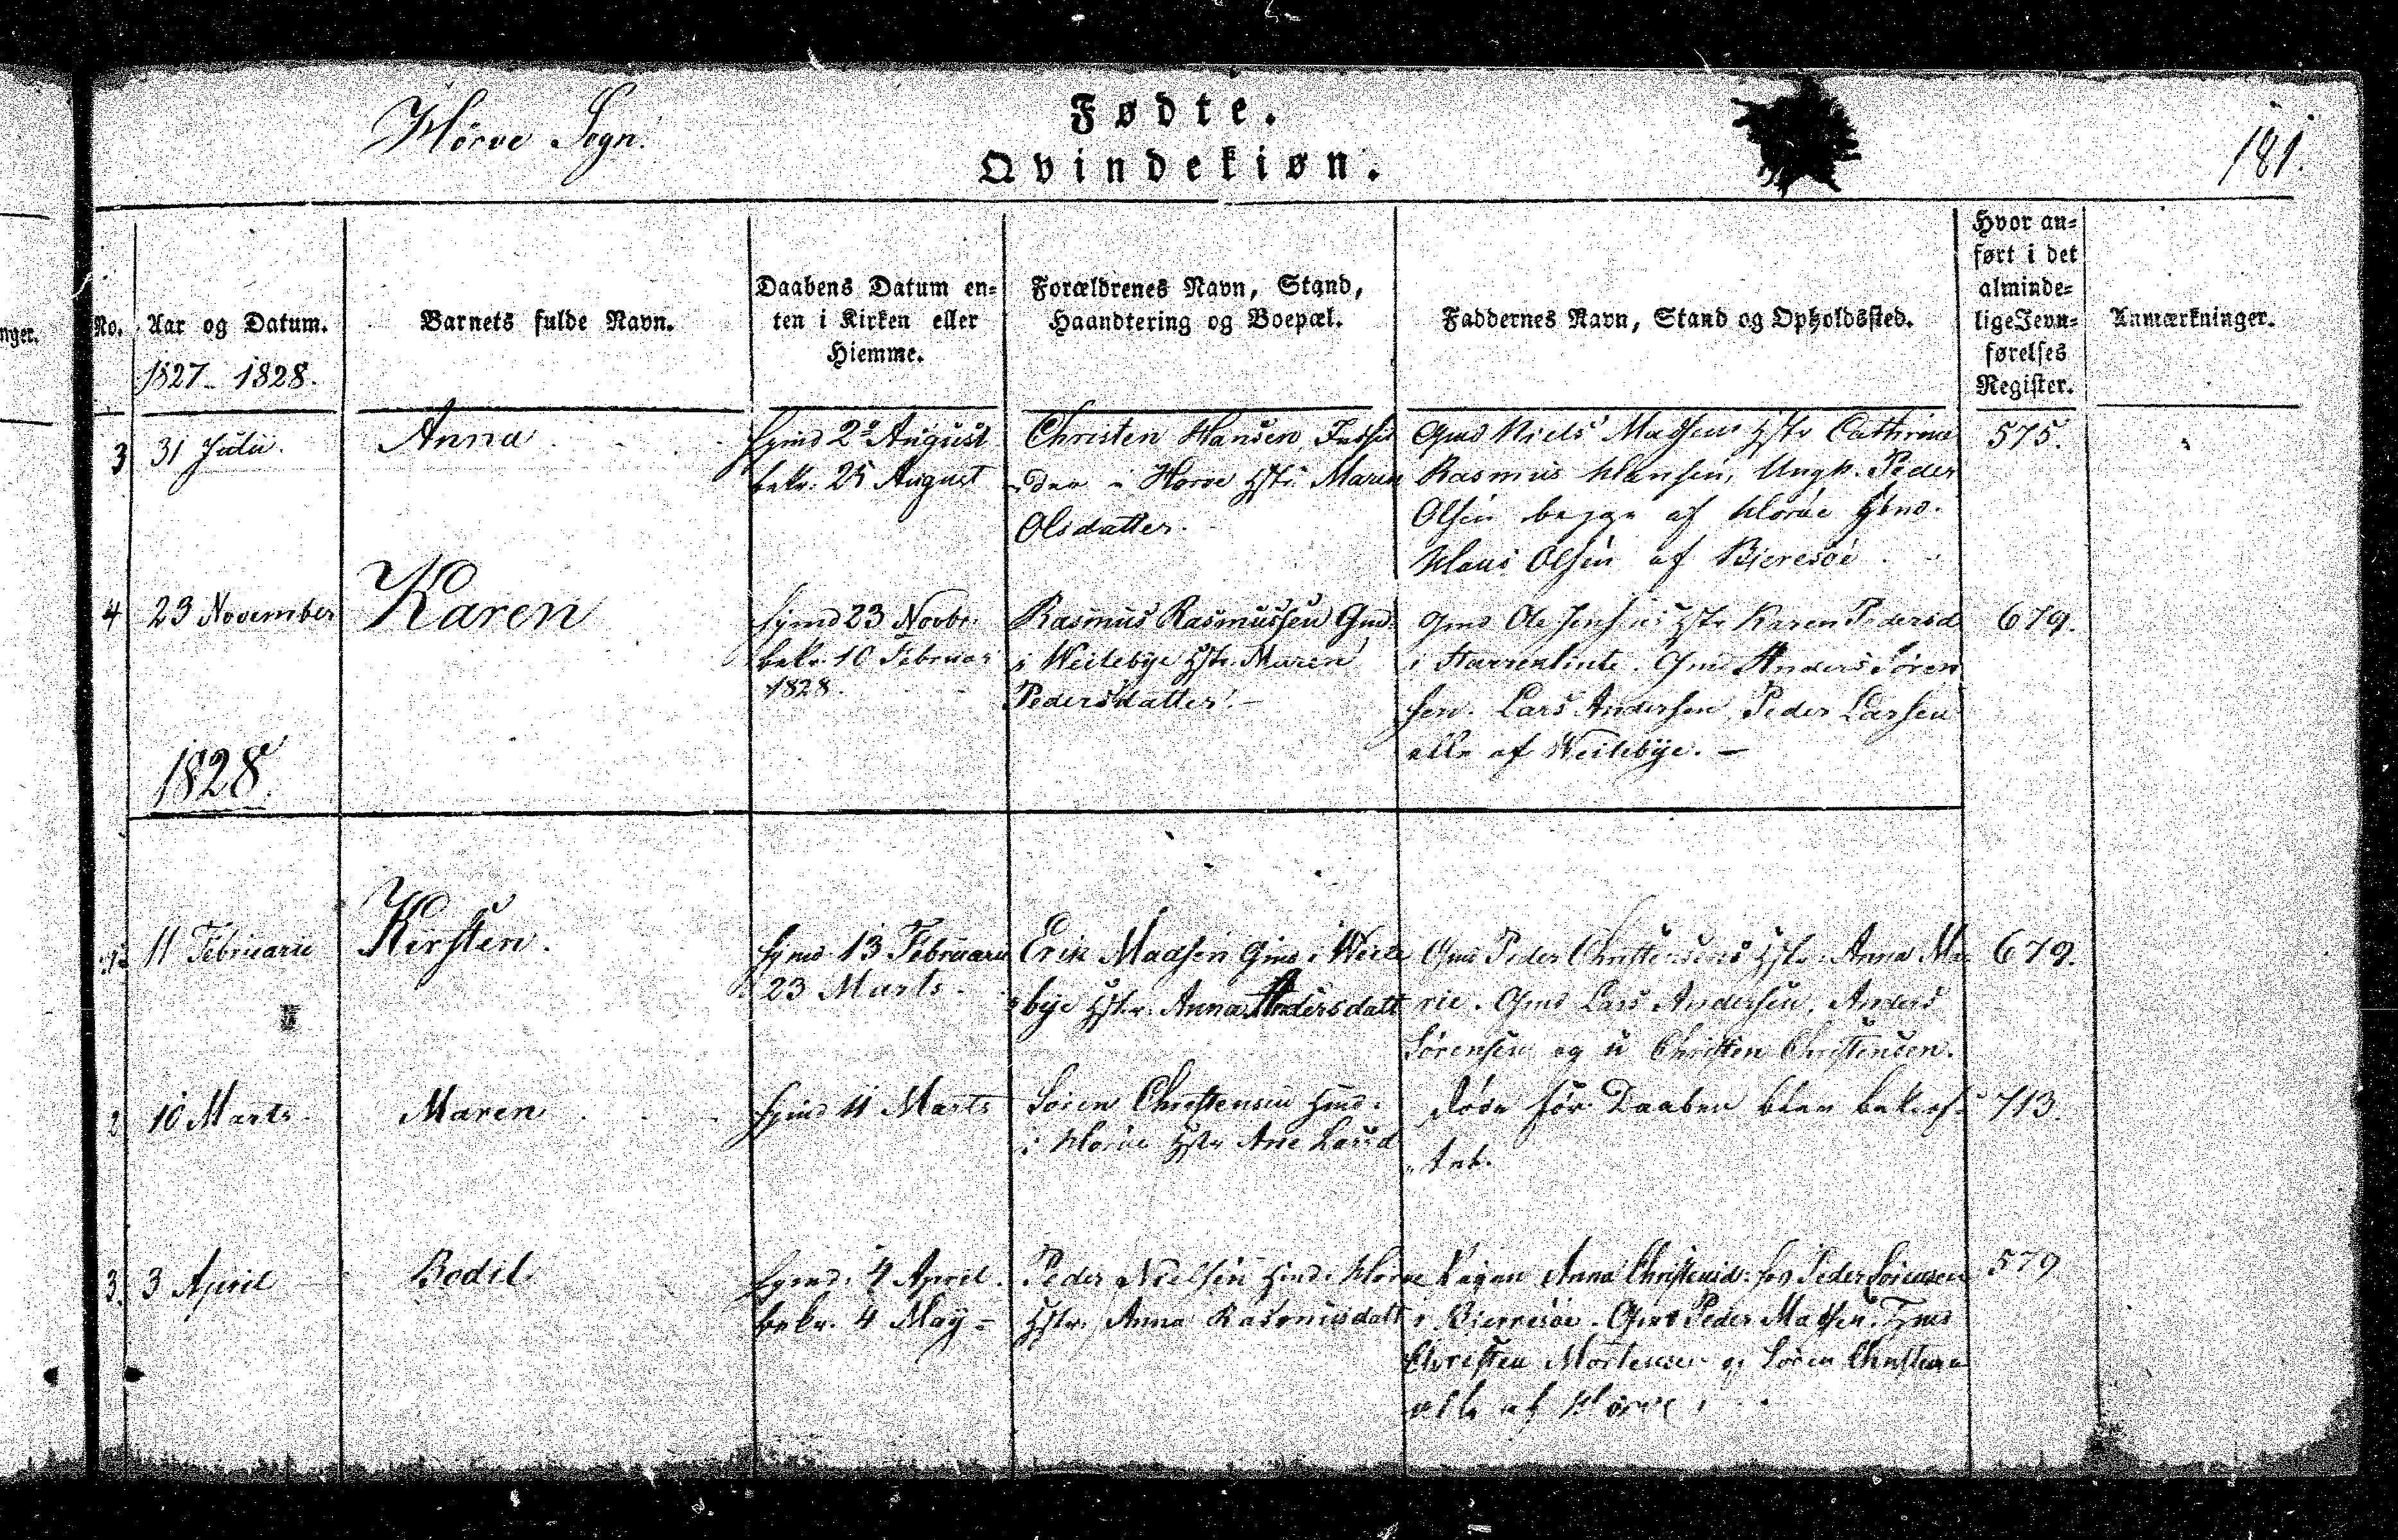 Hörve Sogn.
Fødte.
Qvindekiøn.
181.
nger.
No.
Aar og Datum.
1827- 1828.
Barnets fulde Navn.
Daabens Datum en-
ten i Kirken eller
Hiemme.
Forældrenes Navn, Stand,
Haandtering og Boepæl.
Faddernes Navn, Stand og Opholdssted.
Hvor an-
ført i det
alminde-
lige Jevn-
førelses
Register.
Anmærkninger.
3
31 Julii.
Anna
Hjmd 2d August
bekr. 25 August
Christen Hansen, Indsid
der i Hörve Hstr. Maren
Olsdatter.
Gmd Niels Madsens Hstr Cathrine
Rasmus Hansen, Ungk. Peder
Olsen begge af Hörve Hmd.
Hans Olsen af Bieresöe.
575.
4
23 November
Karen
Hjmd 23 Novbr.
bekr. 10 Februar
1828.
Rasmus Rasmussen Gmd.
i Weilebÿe Hstr. Maren
Pedersdatter.-
Gmd Ole Jensens Hstr Karen Pedersd
i Starreklinte. Gmd Anders Sören
sen. Lars Andersen, Peder Larsen
alle af Weilebÿe.-
679.
1828.
1
11 Februarii
Kirsten.
Hjmd 13 Februarii
23 Marts.
Erik Madsen Gmd i Weile
bÿe Hstr. Anna Andersdatt
Gmd Peder Christensens Hstr. Anna Ma
rie. Gmd Lars Andersen, Anders
Sörensen og u Christen Christensen.
679.
2
10 Marts.
Maren
Hjmd 11 Marts
Sören Christensen Hmd.
i Hörve Hstr Ane Larsd
Döde för Daaben blev bekræf-
713.
3.
3 April
Bodil
Hjmd. 4 April.
bekr. 4 Maÿ-
Peder Nielsen Hmd. Hörve
Hstr. Anna Rasmusdatt
Pigen Anna Christensd. hos Peder Sörensen
i Bierresöe. Gmd Peder Madsen. Hmd
Christen Mortensen og Sören Christensen
alle af Hörve.
579